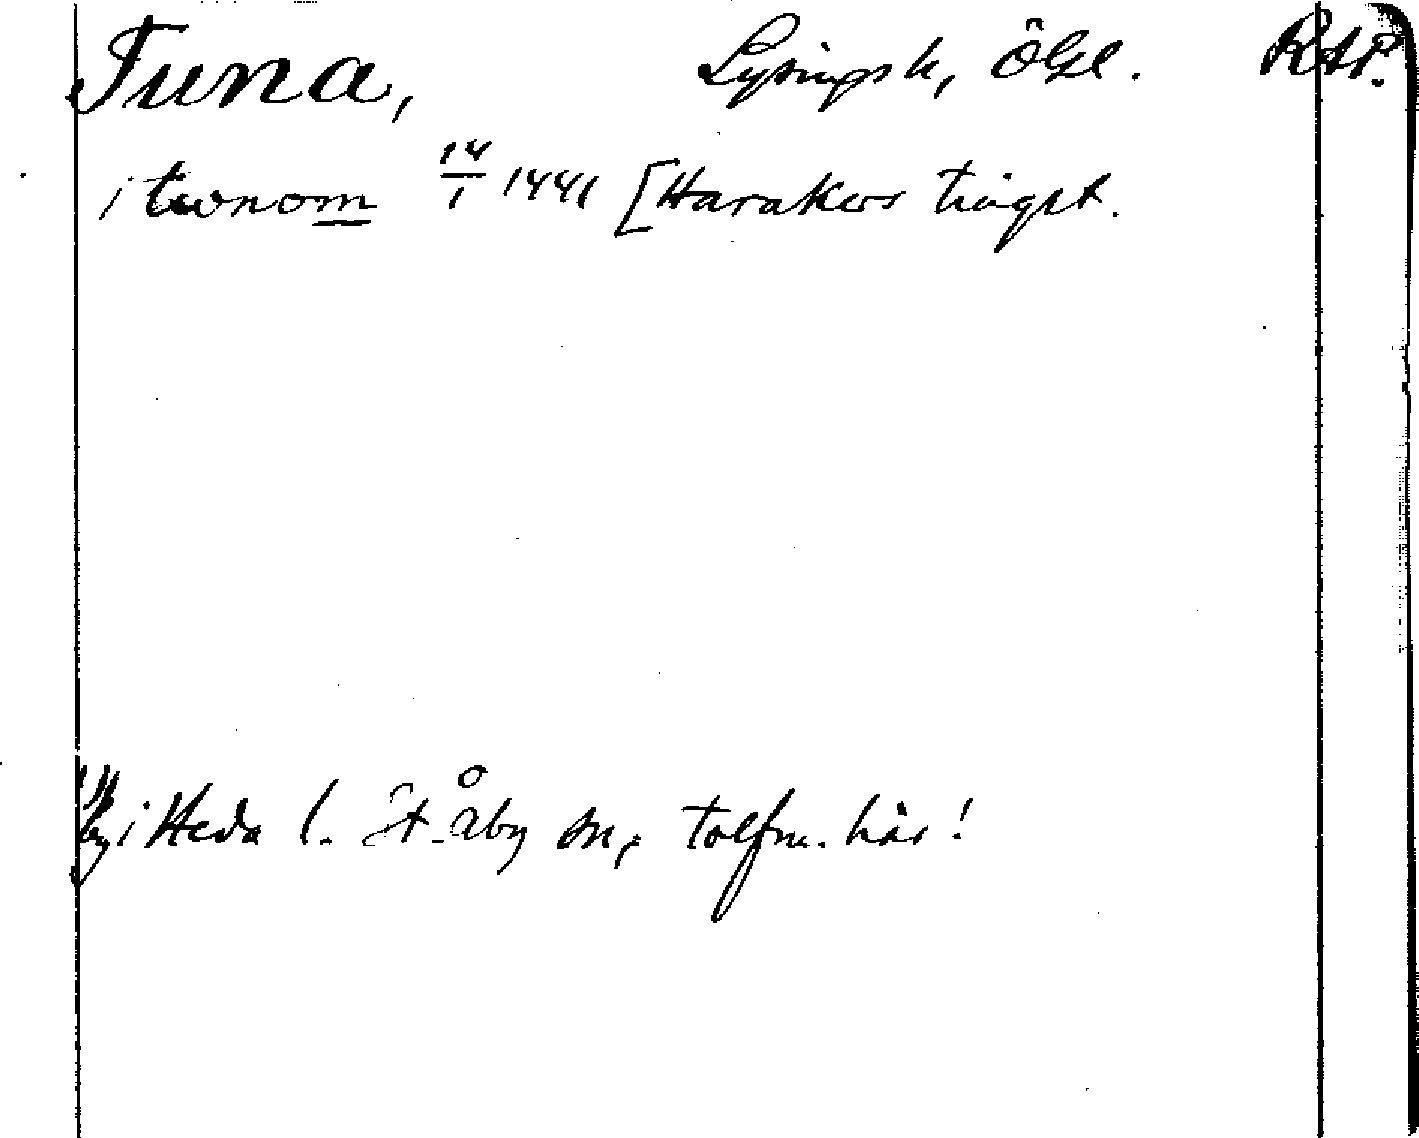 Tuna, Lysings h, Ögtl. RAP.
i twnom 14/1 1441 [Harakers tingst.
By i Heda l. St. Åby sn, tolfm. här!